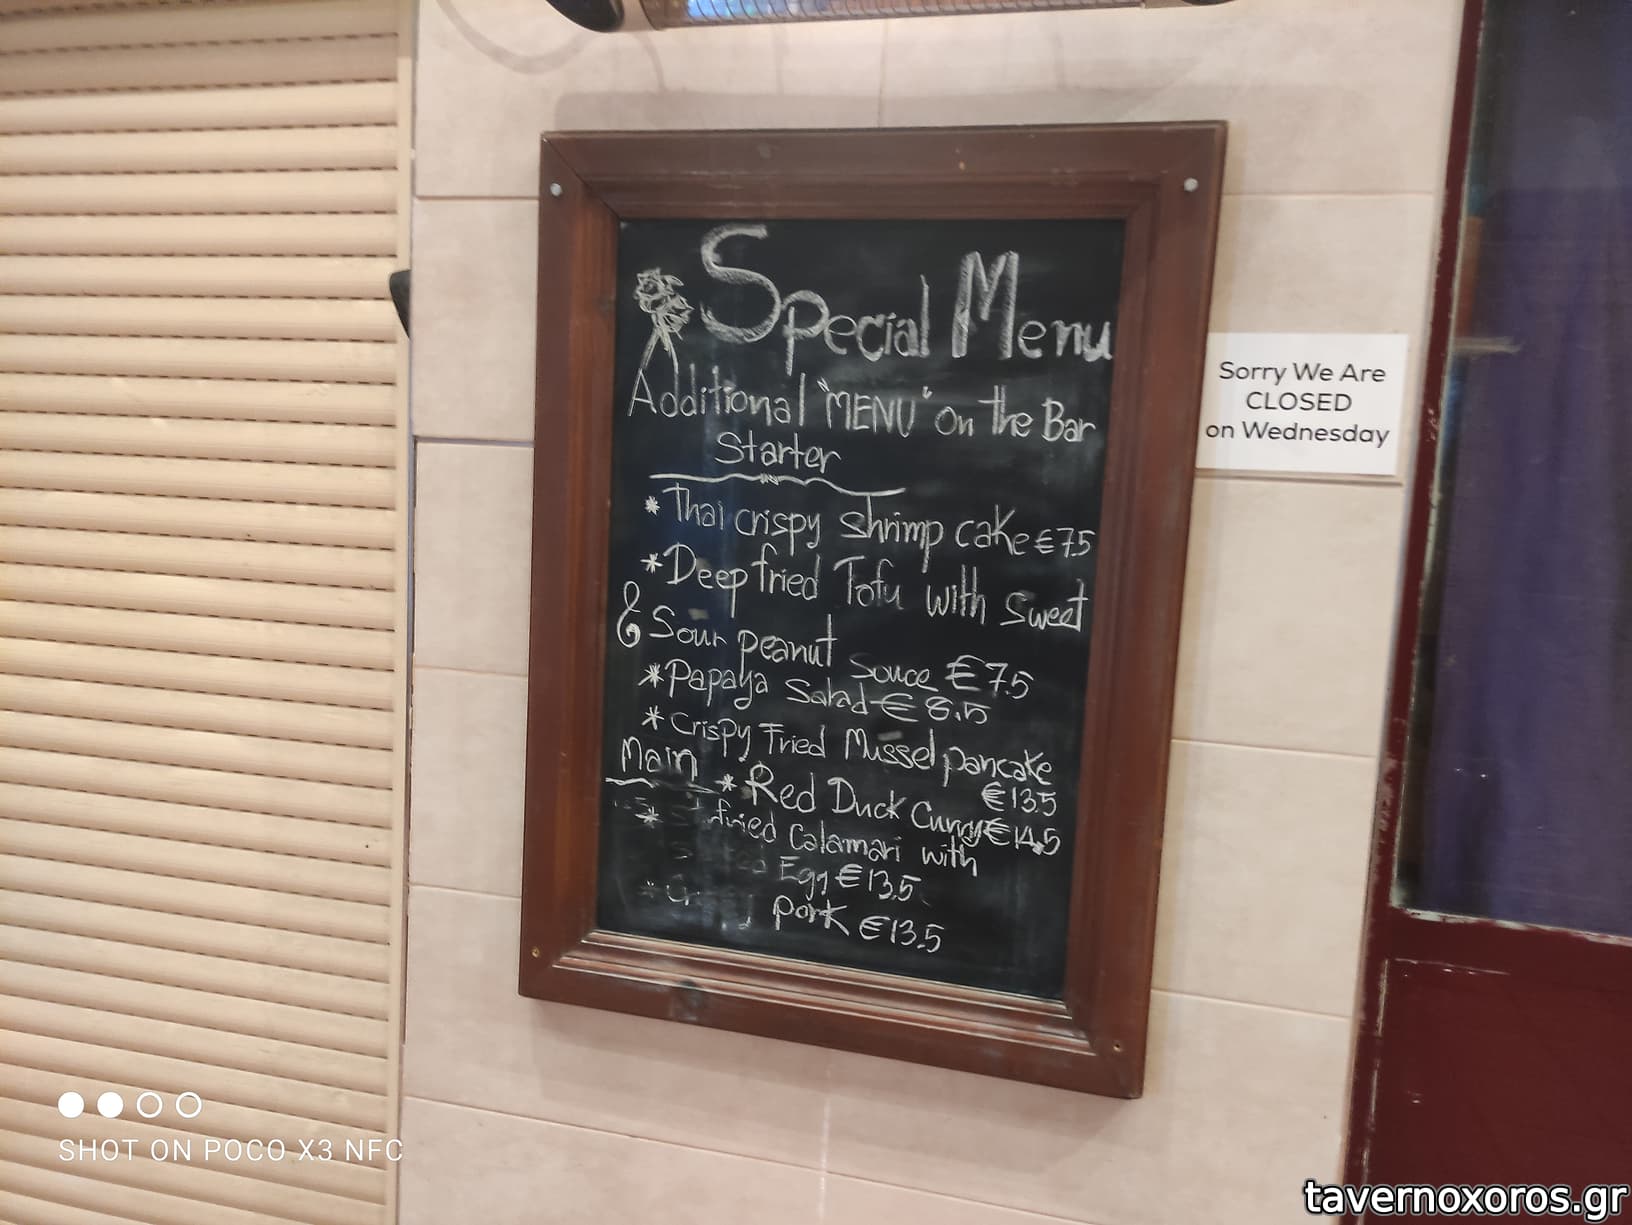 Special Menu
Additional "MENU" on the Bar
Starter
* Thai crispy Shrimp cake €7.5
* Deep fried Tofu with Sweet
& Sour peanut Souce €7.5
* Papaya Salad €8.5
* Crispy Fried Mussel pancake
€13.5
Main * Red Duck Curry €14.5
* fried Calamari with
Egg €13.5
* pork €13.5
Sorry We Are
CLOSED
on Wednesday
SHOT ON POCO X3 NFC
tavernoxoros.gr